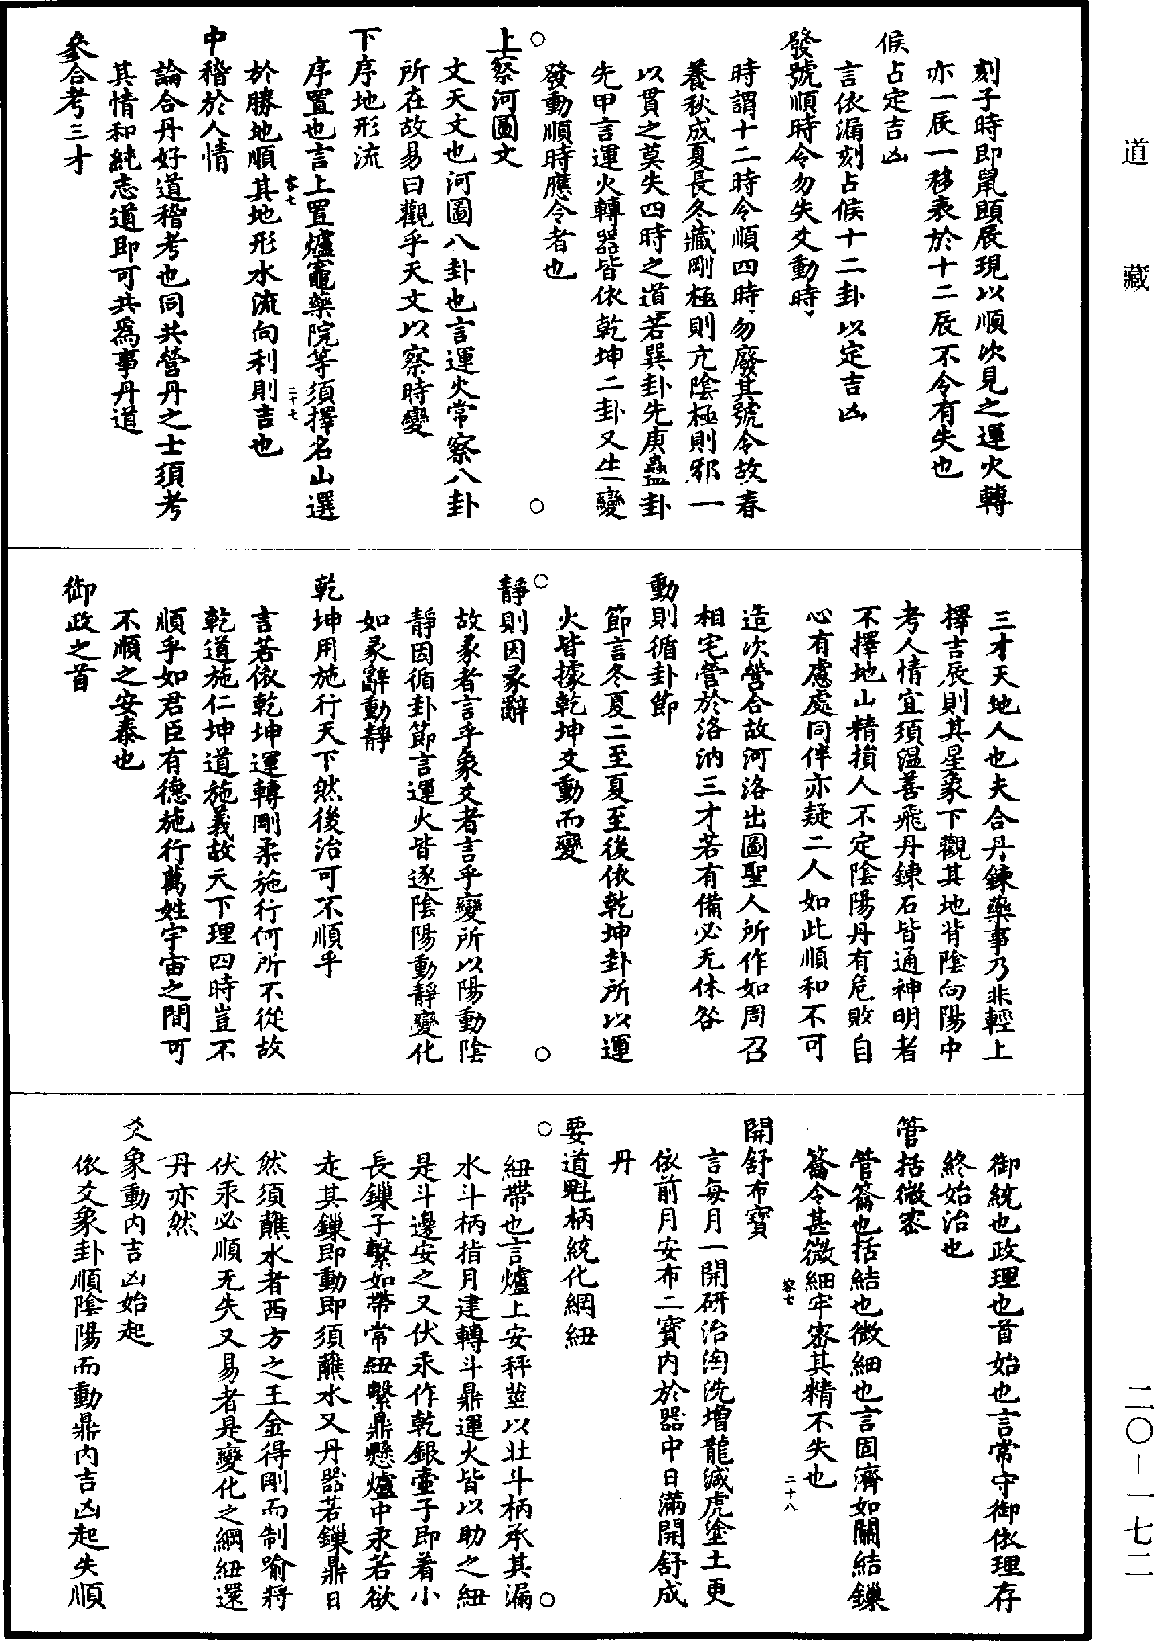 刻子時即鼠頤辰現以順次見之運火轉
亦一辰一移表於十二辰不令有失也
候占定吉凶
言依漏刻占候十二卦以定吉凶
發號順時令勿失爻動時
時謂十二時令順四時勿廢其號令故春
養秋成夏長冬藏剛極則亢陰極則邪一
以貫之莫失四時之道若巽卦先庚蠱卦
先甲言運火轉器皆依乾坤二卦又生一變
發動順時應令者也
上察河圖文
文天文也河圖八卦也言運火常察八卦
所在故易曰觀乎天文以察時變
下序地形流
序置也言上置爐竈藥院等須擇名山選
於勝地順其地形水流向利則吉也
容七
二十七
中稽於人情
論合丹好道稽考也同共營丹之士須考
其情和純志道即可共爲事丹道
參合考三才
三才天地人也夫合丹鍊藥事乃非輕上
擇吉辰則其星象下觀其地背陰向陽中
考人情宜須溫善飛丹鍊石皆通神明者
不擇地山精損人不定陰陽丹有危敗自
心有慮處同伴亦疑二人如此順和不可
造次營合故河洛出圖聖人所作如周召
相宅管於洛汭三才若有備必无休咎
動則循卦節
節言冬夏二至夏至後依乾坤卦所以運
火皆據乾坤爻動而變
靜則因彖辭
故彖者言乎象爻者言乎變所以陽動陰
靜因循卦節言運火皆逐陰陽動靜變化
如彖辭動靜
乾坤用施行天下然後治可不順乎
言若依乾坤運轉剛柔施行何所不從故
乾道施仁坤道施義故天下理四時豈不
順乎如君臣有德施行萬姓宇宙之間可
不順之安泰也
御政之首
御統也政理也首始也言常守御依理存
終始治也
管括微密
管籥也括結也微細也言固濟如關結鏁
籥令甚微細牢密其精不失也
容七
二十八
開舒布寶
言每月一開研治淘洗增龍減虎塗土更
依前月安布二寶內於器中日滿開舒成
丹
要道魁柄統化綱紐
紐帶也言爐上安秤莖以壯斗柄承其漏
水斗柄指月建轉斗鼎運火皆以助之紐
是斗邊安之又伏汞作乾銀壷子即着小
長鏁子繫如帶常紐繫鼎懸爐中汞若欲
走其鏁即動即須蘸水又丹器若鏁鼎日
然須蘸水者西方之王金得剛而制喻將
伏汞必順无失又易者是變化之綱紐還
丹亦然
爻象動內吉凶始起
依爻象卦順陰陽而動鼎內吉凶起失順
道藏
二〇—一七二